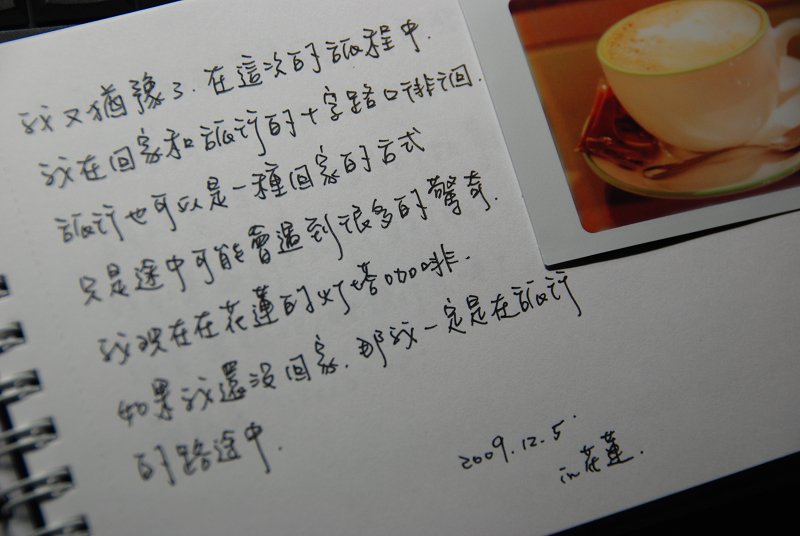 我又猶豫了.在這次的旅程中.
我在回家和旅行的十字路口徘徊.
旅行也可以是一種回家的方式
只是途中可能會遇到很多的驚奇.
我現在在花蓮的灯塔咖啡.
如果我還沒回家.那我一定是在旅行
的路途中.
2009.12.5.
in花蓮.